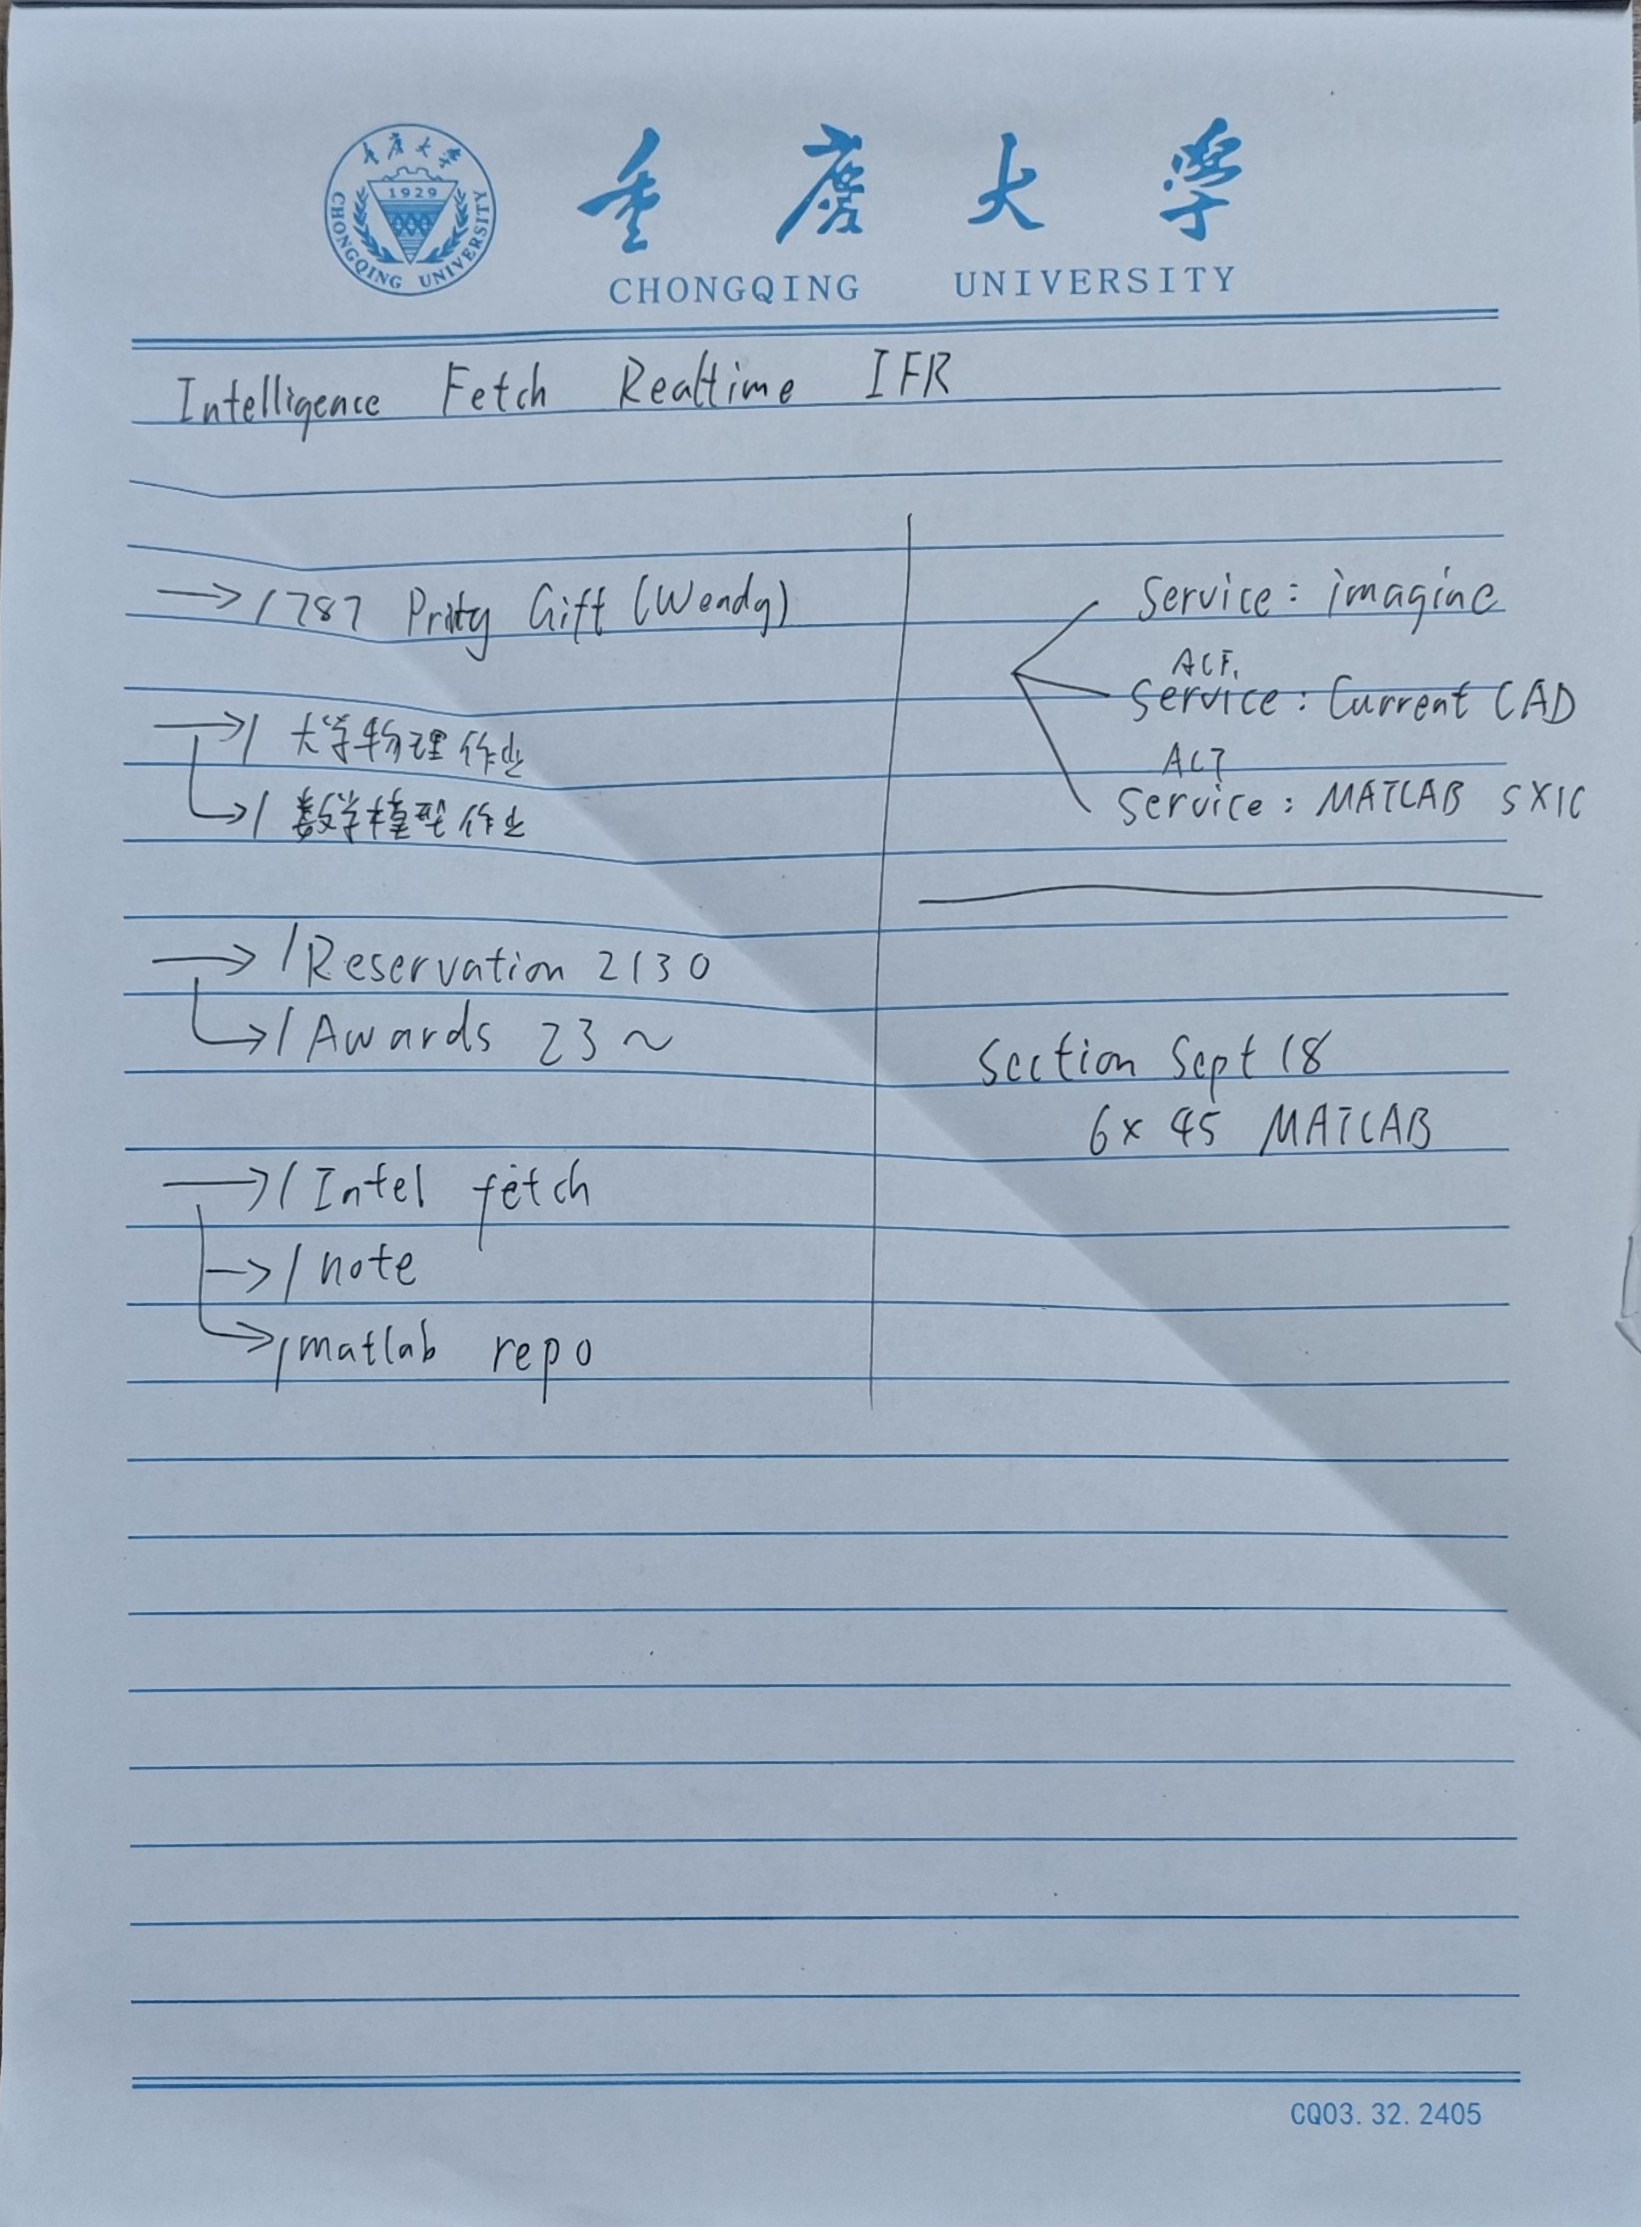 重庆大学
1929
CHONGQING UNIVERSITY
重庆大学
CHONGQING UNIVERSITY
Intelligence Fetch Realtime IFR
→/787 Gift (Wendy)
→/ 大学物理作业
→/ 数学模型作业
→/Reservation 2130
→/Awards 23~
→/Intel fetch
→/note
→/matlab repo
Service: imagine
ACF.
Service: Current CAD
Service: MATLAB SXIC
Section Sept 18
6× 45 MATLAB
CQ03.32.2405